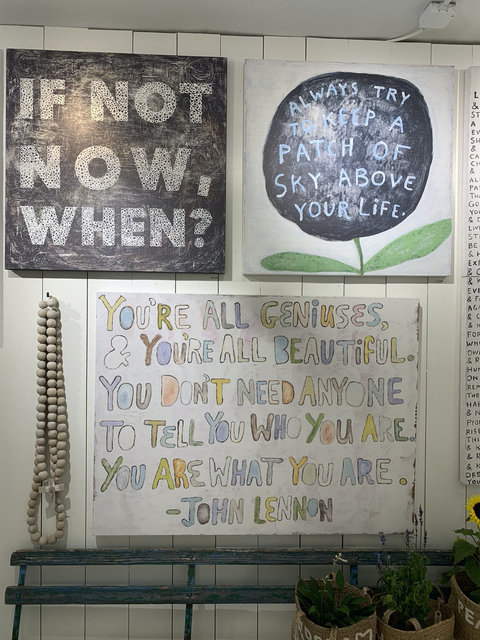 IF NOT
NOW,
WHEN?
ALWAYS TRY
TO KEEP A
PATCH OF
SKY ABOVE
YOUR LIFE.
YOU'RE ALL GENIUSES,
& YOU'RE ALL BEAUTIFUL.
YOU DON'T NEED ANYONE
TO TELL YOU WHO YOU ARE.
YOU ARE WHAT YOU ARE.
-JOHN LENNON